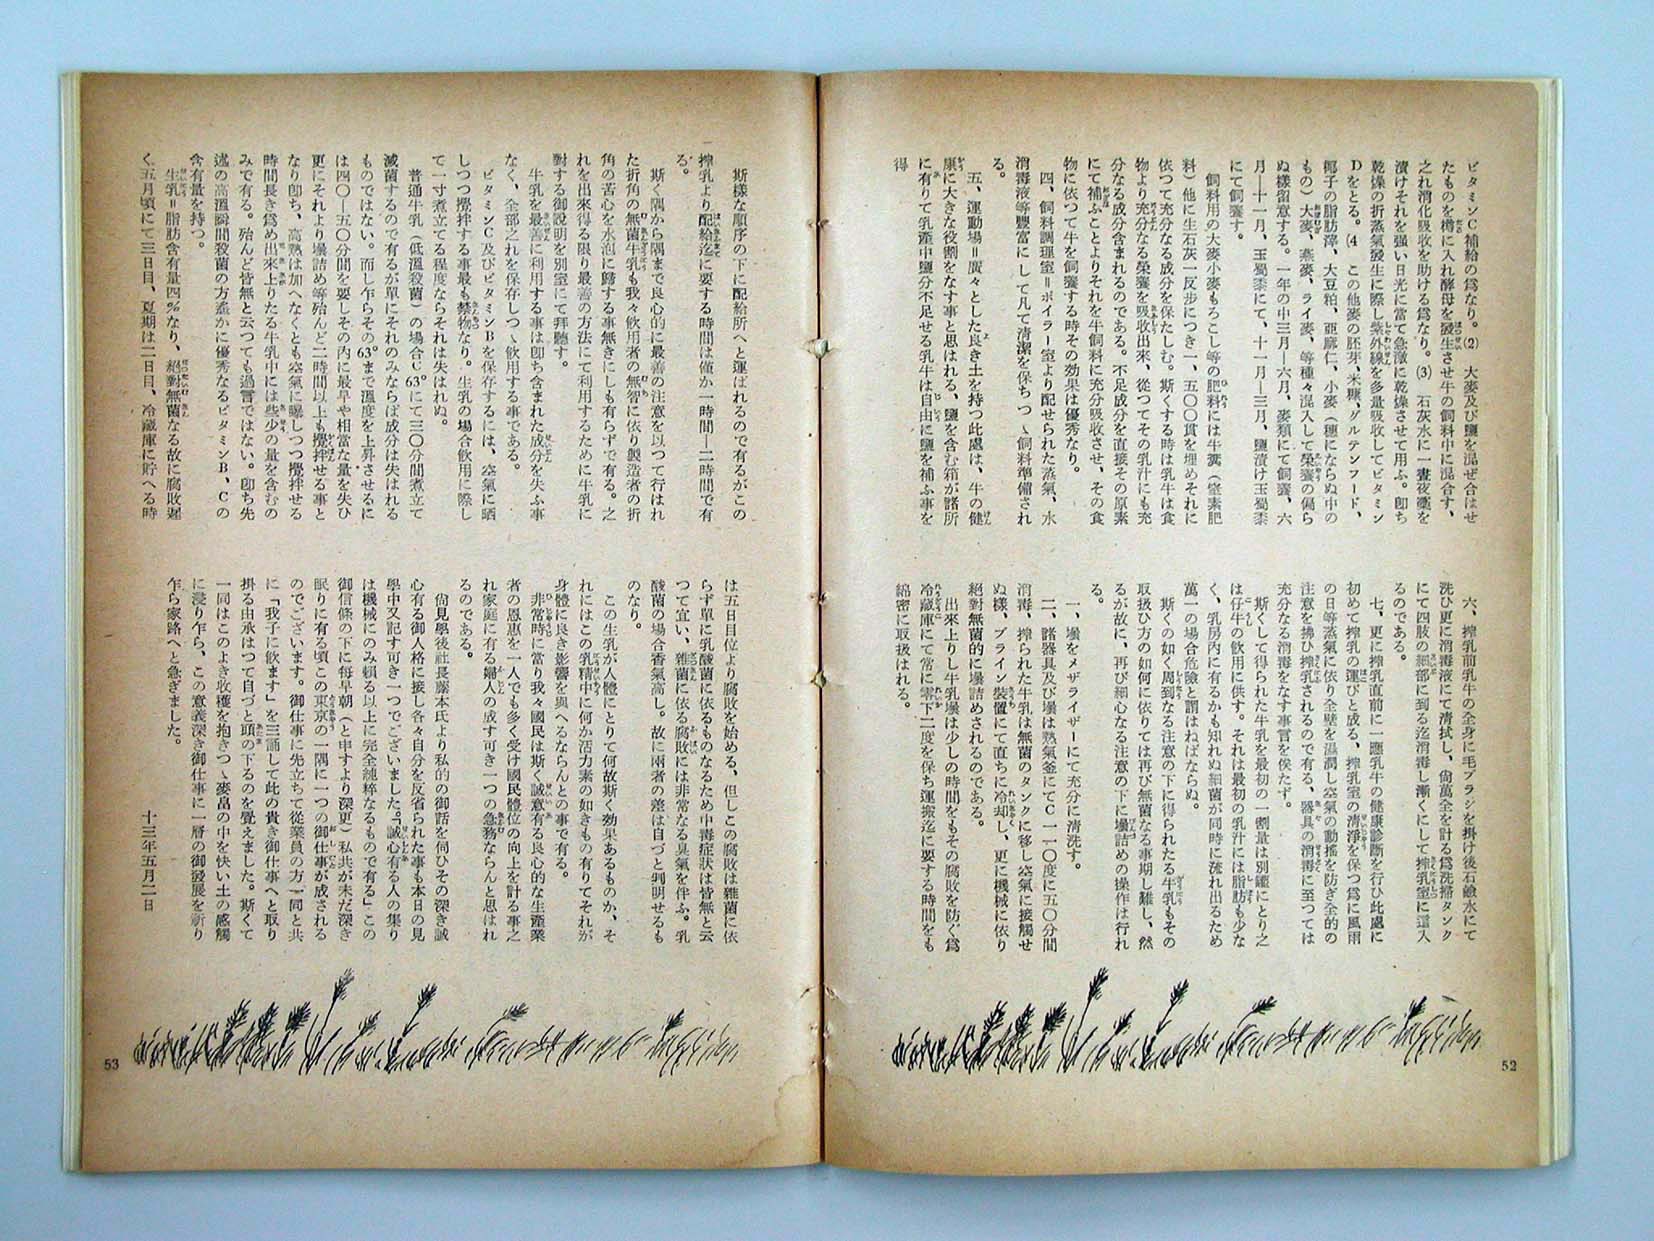 ビタミンC補給の爲なり。(2) 大麥及び鹽を混ぜ合はせ
たものを樽に入れ酵母を發生させ牛の飼料中に混合す、
之れ消化吸收を助ける爲なり。(3) 石灰水に一晝夜藁を
漬けそれを强い日光に當て急激に乾燥させて用ふ。卽ち
乾燥の折蒸氣發生に際し紫外線を多量吸收してビタミン
Dをとる。(4 この他麥の胚芽、米糠、グルテンフード、
椰子の脂肪滓、大豆粕、亞麻仁、小麥(穗にならぬ中の
もの)大麥、燕麥、ライ麥、等種々混入して榮養の偏ら
ぬ樣留意する。一年の中三月—六月、麥類にて飼養、六
月—十一月、玉蜀黍にて、十一月—三月、鹽漬け玉蜀黍
にて飼養す。
飼料用の大麥小麥もろこし等の肥料には牛糞(窒素肥
料)他に生石灰一反步につき一、五〇〇貫を埋めそれに
依つて充分なる成分を保たしむ。斯くする時は乳牛は食
物より充分なる榮養を吸收出來、從つてその乳汁にも充
分なる成分含まれるのである。不足成分を直接その原素
にて補ふことよりそれを牛飼料に充分吸收させ、その食
物に依つて牛を飼養する時その効果は優秀なり。
四、飼料調理室＝ボイラー室より配せられた蒸氣、水
消毒液等豐富にして凡て淸潔を保ちつゝ飼料準備され
る。
五、運動場＝廣々とした良き土を持つ此處は、牛の健
康に大きな役割をなす事と思はれる、鹽を含む箱が諸所
に有りて乳產中鹽分不足せる乳牛は自由に鹽を補ふ事を
得
六、搾乳前乳牛の全身に毛ブラシを掛け後石鹼水にて
洗ひ更に消毒液にて淸拭し、尙萬全を計る爲洗滌タンク
にて四肢の細部に到る迄消毒し漸くにして搾乳室に這入
るのである。
七、更に搾乳直前に一應乳牛の健康診斷を行ひ此處に
初めて搾乳の運びと成る、搾乳室の淸淨を保つ爲に風雨
の日等蒸氣に依り全壁を濕潤し空氣の動搖を防ぎ全的の
注意を拂ひ搾乳されるので有る、器具の消毒に至つては
充分なる消毒をなす事言を俟たず。
斯くして得られた牛乳を最初の一割量は別鑵にとり之
は仔牛の飮用に供す。それは最初の乳汁には脂肪も少な
く、乳房內に有るかも知れぬ細菌が同時に流れ出るため
萬一の場合危險と謂はねばならぬ。
斯くの如く周到なる注意の下に得られたる牛乳もその
取扱ひ方の如何に依りては再び無菌なる事期し難し、然
るが故に、再び細心なる注意の下に壜詰めの操作は行れ
る。
一、壜をメザライザーにて充分に淸洗す。
二、諸器具及び壜は熱氣釜にてC一一〇度に五〇分間
消毒、搾られた牛乳は無菌のタンクに移し空氣に接觸せ
ぬ樣、ブライン裝置にて直ちに冷却し、更に機械に依り
絕對無菌的に壜詰めされるのである。
出來上りし牛乳壜は少しの時間をもその腐敗を防ぐ爲
冷藏庫にて常に零下二度を保ち運搬迄に要する時間をも
綿密に取扱はれる。
52
斯樣な順序の下に配給所へと運ばれるので有るがこの
搾乳より配給迄に要する時間は僅か一時間—二時間で有
る。
斯く隅から隅まで良心的に最善の注意を以つて行はれ
た折角の無菌牛乳も我々飮用者の無智に依り製造者の折
角の苦心を水泡に歸する事無きにしも有らずで有る。之
れを出來得る限り最善の方法にて利用するために牛乳に
對する御說明を別室にて拜聽す。
牛乳を最善に利用する事は卽ち含まれた成分を失ふ事
なく、全部之れを保存しつゝ飮用する事である。
ビタミンC及びビタミンBを保存するには、空氣に晒
しつつ攪拌する事最も禁物なり。生乳の場合飮用に際し
て一寸煮立てる程度ならそれは失はれぬ。
普通牛乳(低溫殺菌)の場合C63°にて三〇分間煮立て
滅菌するので有るが單にそれのみならば成分は失はれる
ものではない。而し乍らその63°まで溫度を上昇させるに
は四〇—五〇分間を要しその內に最早や相當な量を失ひ
更にそれより壜詰め等殆んど二時間以上も攪拌せる事と
なり卽ち、高熱は加へなくとも空氣に曝しつつ攪拌せる
時間長き爲め出來上りたる牛乳中には些少の量を含むの
みで有る。殆んど皆無と云つても過言ではない。卽ち先
述の高溫瞬間殺菌の方遙かに優秀なるビタミンB、Cの
含有量を持つ。
生乳＝脂肪含有量四％なり、絕對無菌なる故に腐敗遲
く五月頃にて三日目、夏期は二日目、冷藏庫に貯へる時
は五日目位より腐敗を始める、但しこの腐敗は雜菌に依
らず單に乳酸菌に依るものなるため中毒症狀は皆無と云
つて宜い、雜菌に依る腐敗には非常なる臭氣を伴ふ。乳
酸菌の場合香氣高し。故に兩者の差は自づと判明せるも
のなり。
この生乳が人體にとりて何故斯く効果あるものか、そ
れにはこの乳精中に何か活力素の如きもの有りてそれが
身體に良き影響を與へるならんとの事で有る。
非常時に當り我々國民は斯く誠意有る良心的な生產業
者の恩惠を一人でも多く受け國民體位の向上を計る事之
れ家庭に有る婦人の成す可き一つの急務ならんと思はれ
るのである。
尙見學後社長藤本氏より私的の御話を伺ひその深き誠
心有る御人格に接し各々自分を反省られた事も本日の見
學中又記す可き一つでございました。「誠心有る人の集り
は機械にのみ賴る以上に完全純粹なるもので有る」この
御信條の下に每早朝(と申すより深更)私共が未だ深き
眠りに有る頃この東京の一隅に一つの御仕事が成される
のでございます。御仕事に先立ちて從業員の方一同と共
に「我子に飮ます」を三誦して此の貴き御仕事へと取り
掛る由承はつて自づと頭の下るのを覺えました。斯くて
一同はこのよき收穫を抱きつゝ麥畠の中を快い土の感觸
に浸り乍ら、この意義深き御仕事に一層の御發展を祈り
乍ら家路へと急ぎました。
十三年五月二日
53